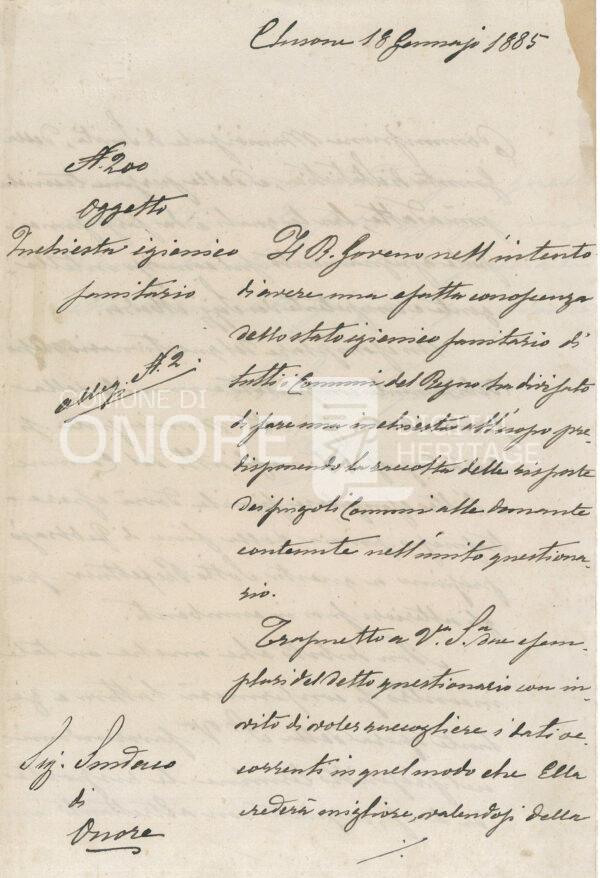 Clusone 18 Gennajo 1885
N. 200
Oggetto
Inchiesta igienico
sanitario
alleg. N. 2.
Il R. Governo nell'intento
di avere una esatta conoscenza
dello stato igienico sanitario di
tutti i Comuni del Regno ha divisato
di fare una inchiesta all'uopo pre-
disponendo la raccolta delle risposte
dei singoli Comuni alle domande
contenute nell'unito questiona-
rio.
Trasmetto a V.a S.a due esem-
plari del detto questionario con in-
vito di voler raccogliere i dati oc-
correnti in quel modo che Ella
crederà migliore, valendosi della
./.
Sig. Sindaco
di
Onore
COMUNE DI
ONORE
HERITAGE